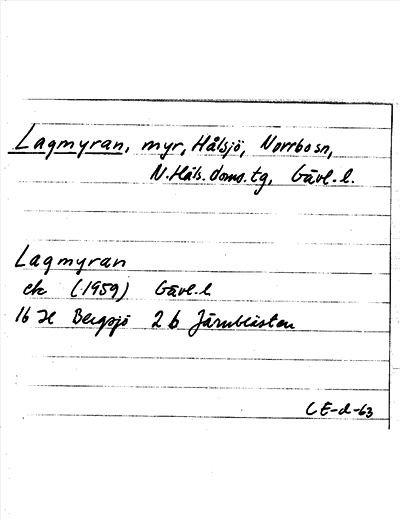 Lagmyran, myr, Hålsjö, Norrbo sn,
N.Häls. doms. tg, Gävl. l.
Lagmyran
ek (1959) Gävl. l
16 H Bergsjö 2 b Järnblästen
CE-d-63